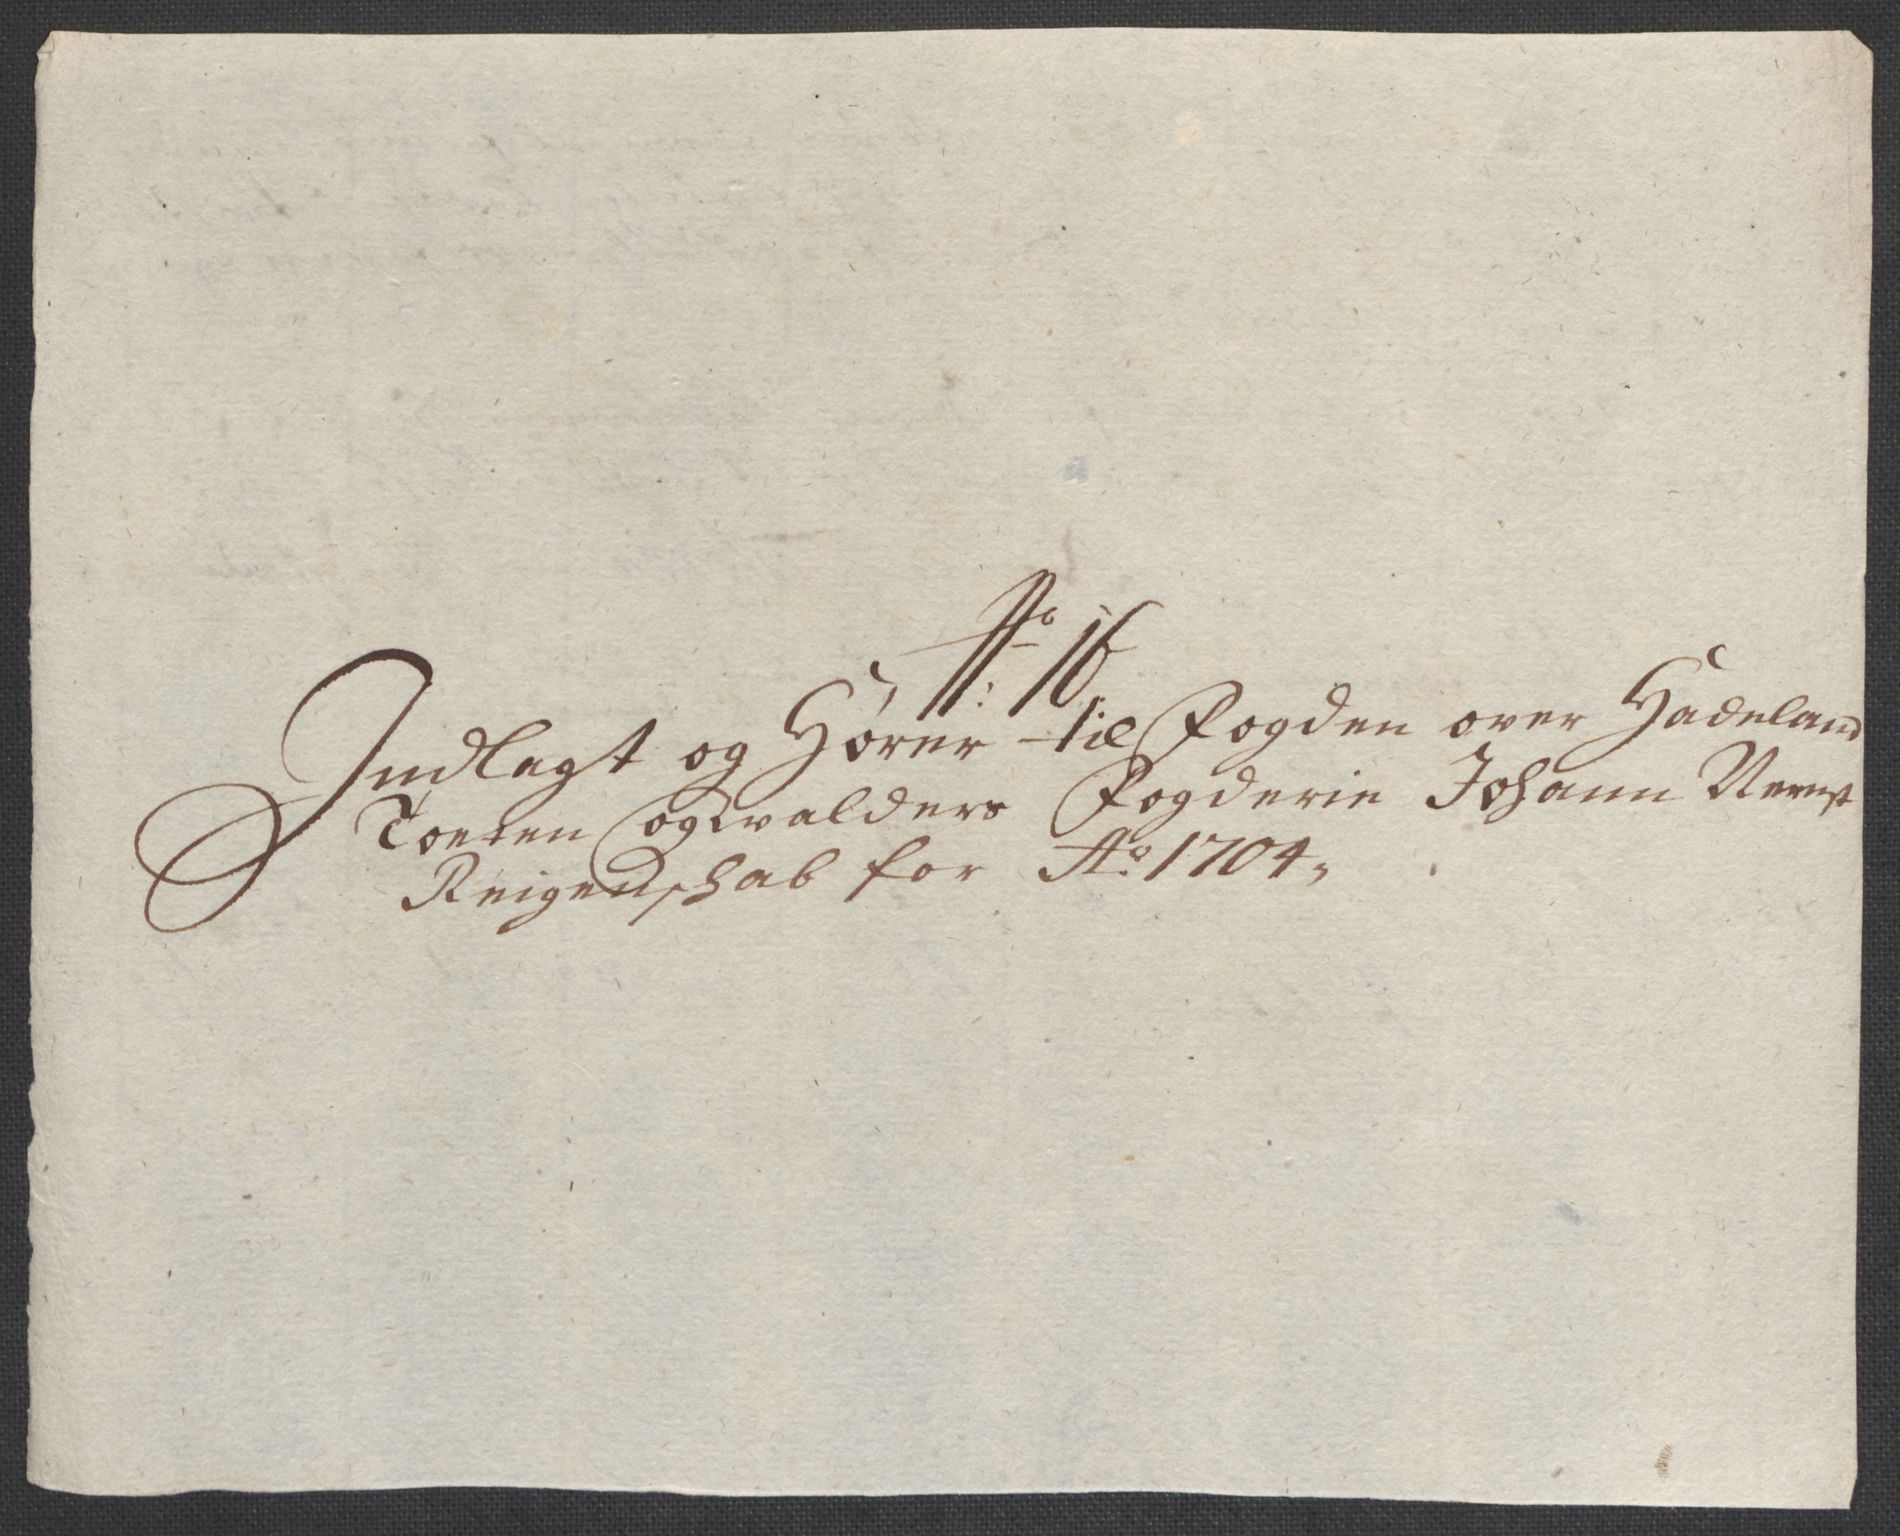 No: 16
Indlagt og Hører til Fogden over Hadeland
Toeten og walders Fogderie Johann
Reigenschab for Ao: 1704,